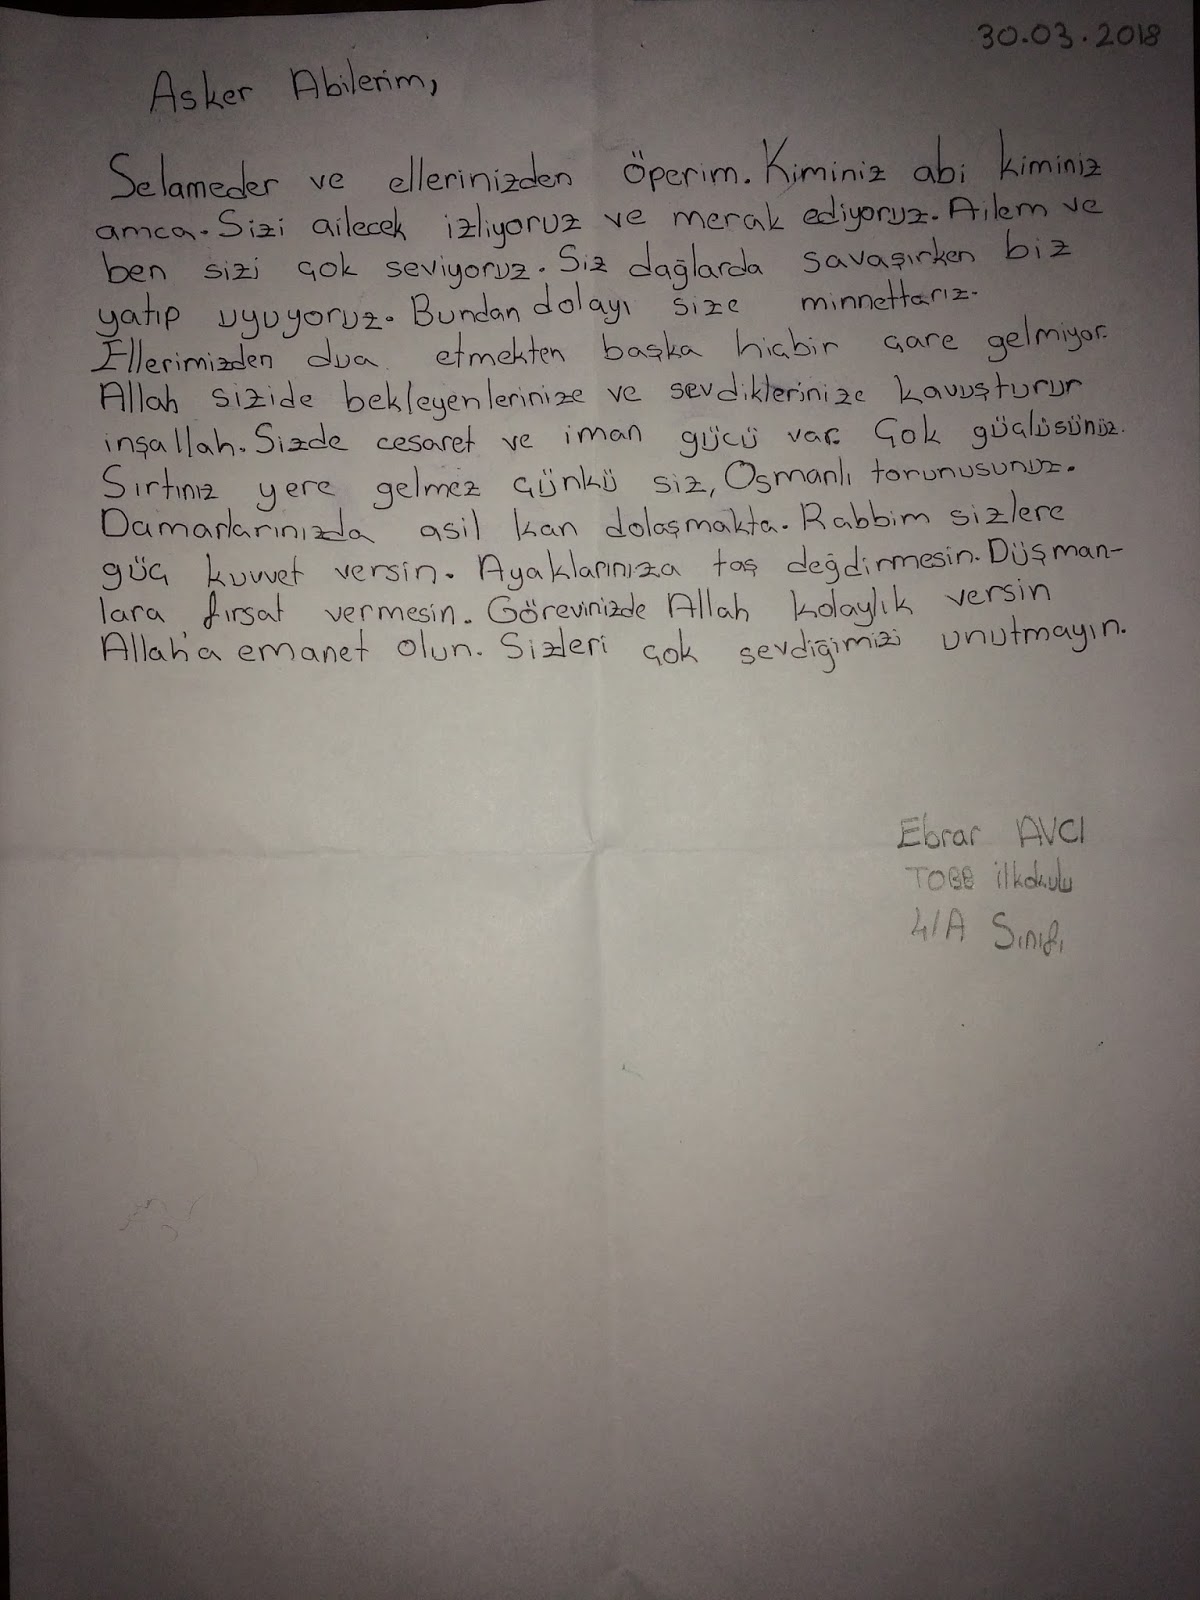 30.03.2018
Asker Abilerim,
Selameder ve ellerinizden öperim. Kiminiz abi kiminiz
amca. Sizi ailecek izliyoruz ve merak ediyoruz. Ailem ve
ben sizi çok seviyoruz. Siz dağlarda savaşırken biz
yatıp uyuyoruz. Bundan dolayı size minnettarız.
Ellerimizden dua etmekten başka hiçbir çare gelmiyor.
Allah sizide bekleyenlerinize ve sevdiklerinize kavuşturur
inşallah. Sizde cesaret ve iman gücü var. Çok güçlüsünüz.
Sırtınız yere gelmez çünkü siz, Osmanlı torunusunuz.
Damarlarınızda asil kan dolaşmakta. Rabbim sizlere
güç kuvvet versin. Ayaklarınıza taş değdirmesin. Düşman-
lara fırsat vermesin. Görevinizde Allah kolaylık versin
Allah'a emanet olun. Sizleri çok sevdiğimizi unutmayın.
Ebrar AVCI
TOBB ilkokulu
4/A Sınıfı